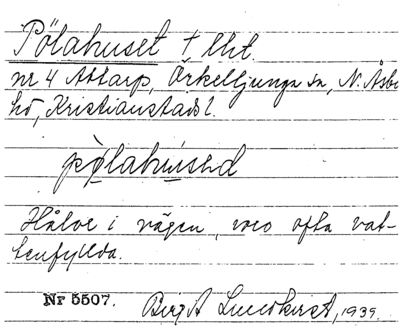 Pölahuset † lht.
nr 4 Attarp, Örkelljunga sn, N. Åsbo
hd, Kristianstads l.
pø̀lahu̱səd
Hålor i vägen, voro ofta vat-
tenfyllda.
Nr 5507. Birgit Lundkvist, 1935.